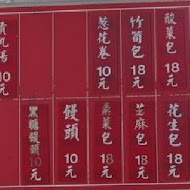 酸菜包
18元
竹筍包
18元
葱花卷
10元
10元
花生包
18元
芝麻包
18元
18元
饅頭
10元
黑糖饅頭
10元